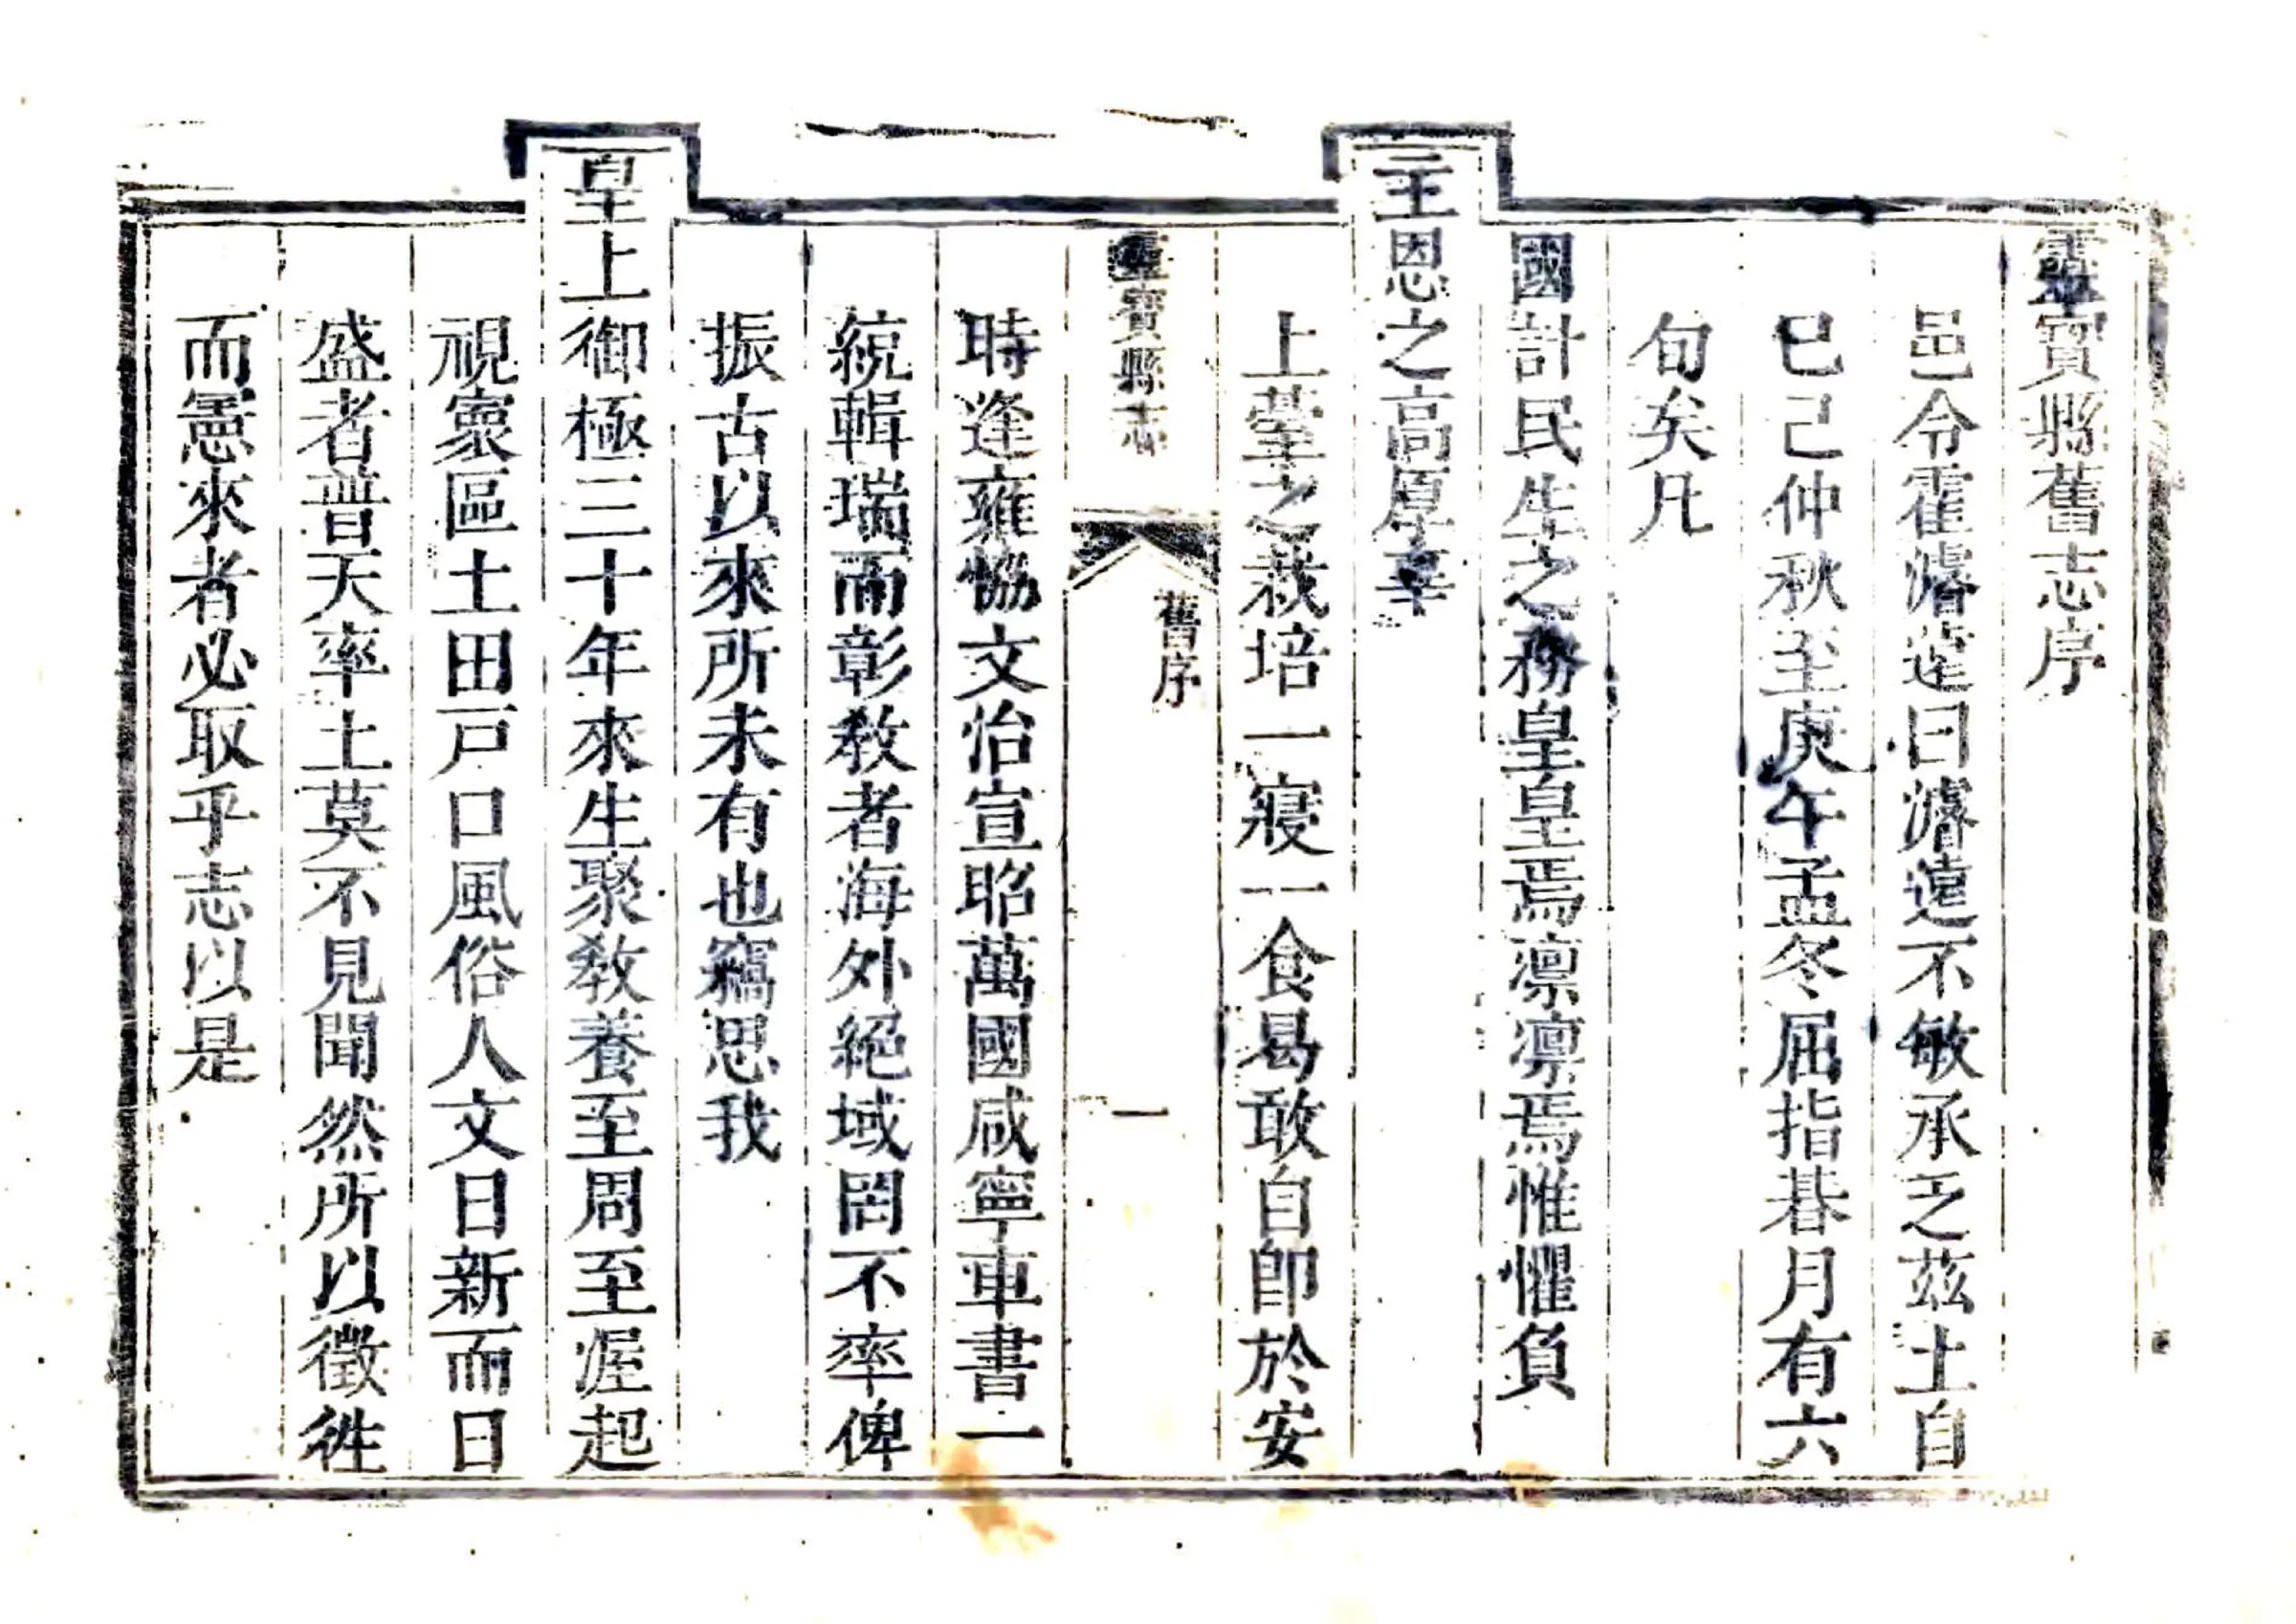 靈寶縣舊志序
邑令霍濬遠曰濬遠不敏承乏茲土自
巳己仲秋至庚午孟冬屈指朞月有六
旬矣凡
國計民生之務皇皇焉凛凛焉惟懼負
主恩之高厚辜
上臺之栽培一寢一食曷敢自卽於安
靈寶縣志
舊序
一
時逢雍恊文治宣昭萬國咸寧車書一
統輯瑞而彰敎者海外絕域罔不率俾
振古以來所未有也竊思我
皇上御極三十年來生聚敎養至周至渥起
視寰區土田戸口風俗人文日新而日
盛者普天率土莫不見聞然所以徵徃
而憲來者必取乎志以是